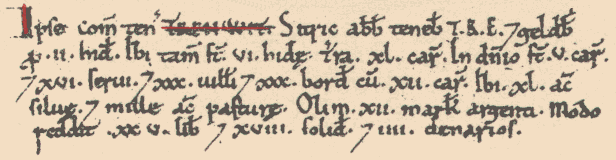 Ipse com̄ ten̄ TREMETONE. Sitric abb̄ teneb̄ T.R.E. ⁊ geldb̄
ꝓ .ii. hid̄. Ibi tam̄ st̄. vi. hidę. T̄ra. xl. car̄. In dn̄io st̄. v. car̄.
⁊ xvi. serui. ⁊ xxx. uilli ⁊ xxx. bord̄ cū. xii. car̄. Ibi. xl. ac̄
siluę. ⁊ mille ac̄ pasturę. Olim. xii. mark̄ argenti. Modo
reddit .xx v. lib̄ ⁊ xviii. solid̄. ⁊ iiii. denarios.